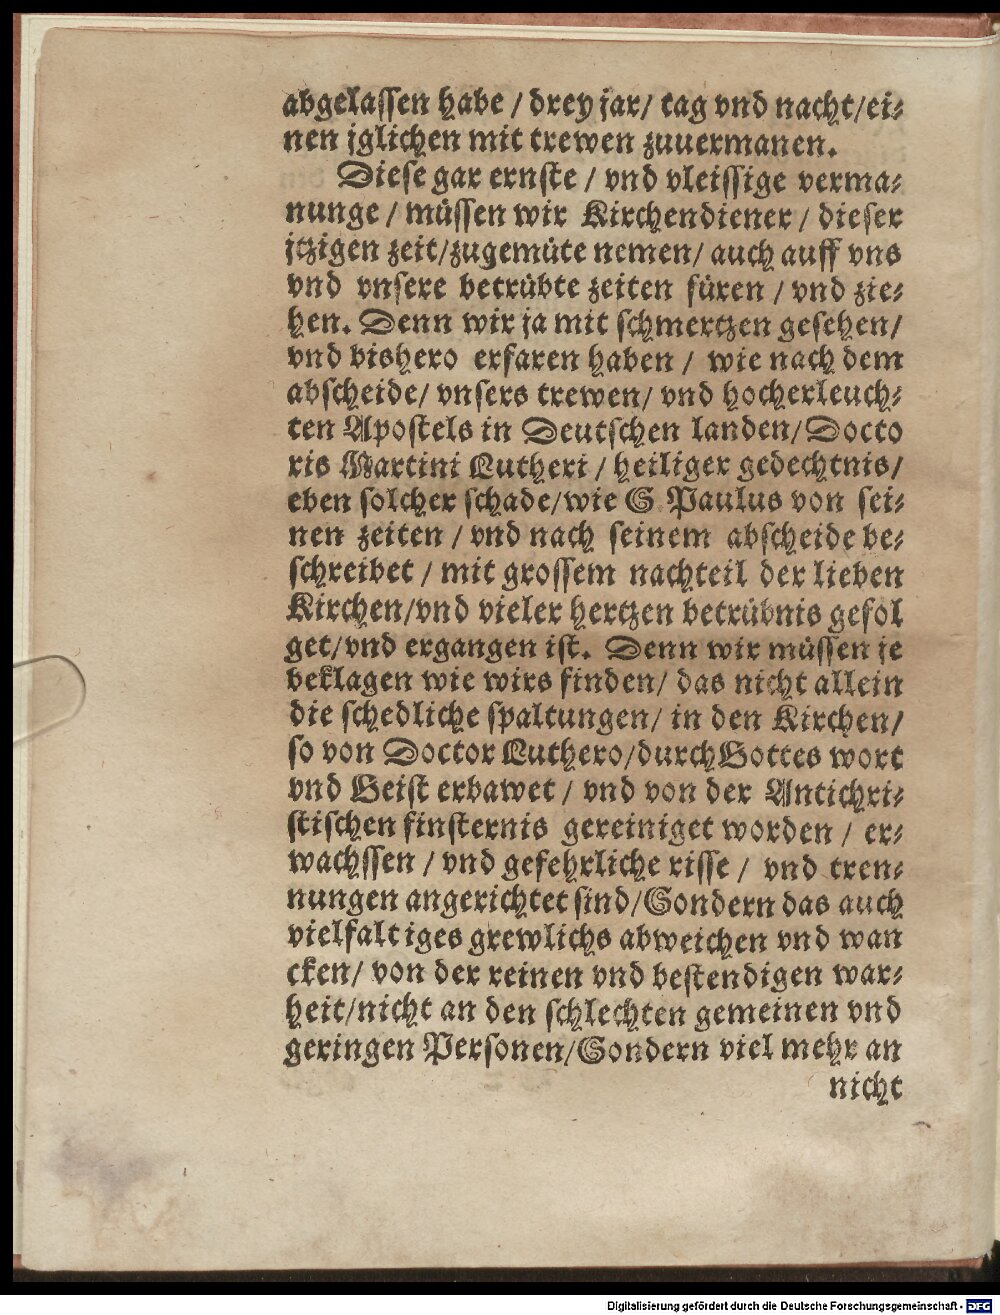 abgelassen habe / drey jar/ tag vnd nacht/ei-
nen jglichen mit trewen zuuermanen.
Diese gar ernste / vnd vleissige verma-
nunge / müssen wir Kirchendiener / dieser
jtzigen zeit/zugemüte nemen/ auch auff vns
vnd vnsere betrübte zeiten füren / vnd zie-
hen. Denn wir ja mit schmertzen gesehen/
vnd bishero erfaren haben / wie nach dem
abscheide/ vnsers trewen/ vnd hocherleuch-
ten Apostels in Deutschen landen/Docto
ris Martini Lutheri / heiliger gedechtnis/
eben solcher schade/wie S. Paulus von sei-
nen zeiten / vnd nach seinem abscheide be-
schreibet / mit grossem nachteil der lieben
Kirchen/vnd vieler hertzen betrübnis gefol
get/vnd ergangen ist. Denn wir müssen je
beklagen wie wirs finden/ das nicht allein
die schedliche spaltungen/ in den Kirchen/
so von Doctor Luthero/durch Gottes wort
vnd Geist erbawet / vnd von der Antichri-
stischen finsternis gereiniget worden / er-
wachssen / vnd gefehrliche risse / vnd tren-
nungen angerichtet sind/Sondern das auch
vielfaltiges grewlichs abweichen vnd wan
cken/ von der reinen vnd bestendigen war-
heit/nicht an den schlechten gemeinen vnd
geringen Personen/Sondern viel mehr an
nicht
Digitalisierung gefördert durch die Deutsche Forschungsgemeinschaft - DFG